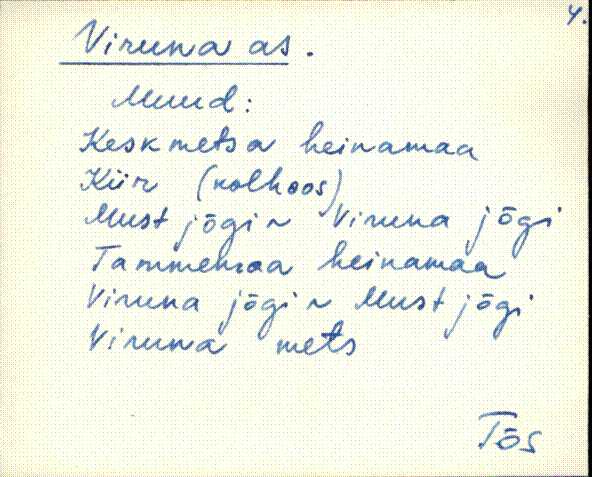 4.
Viruna as.
Muud:
Keskmetsa heinamaa
Kiir (kolhoos)
Must jõgi ~ Viruna jõgi
Tammemaa heinamaa
Viruna jõgi ~ Must jõgi
Viruna mets
Tõs